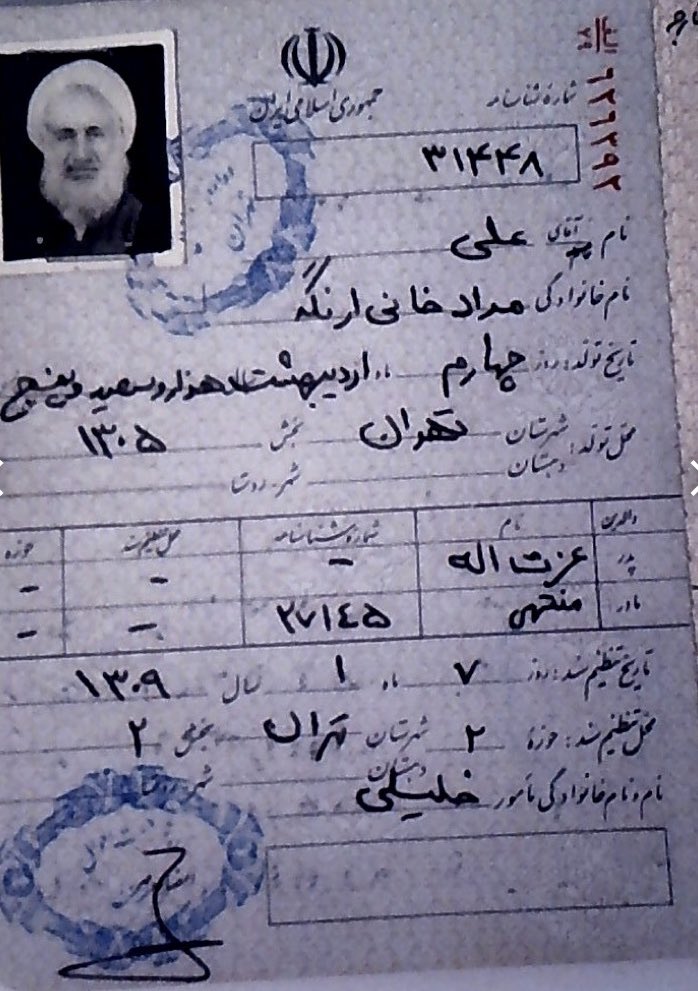 جمهوری اسلامی ایران
شماره شناسنامه
الف ۲۹
۹۲۶۲۹۲
۳۱۴۴۸
نام آقای علی
نام خانوادگی مداد خانی ارنگه
تاریخ تولد: روز چهارم ماه اردیبهشت هزار و سیصد و پنج
۱۳۰۵
محل تولد: شهرستان تهران بخش
دهستان شهر - روستا
والدین نام شماره شناسنامه محل تنظیم سند حوزه
پدر عزت اله - - -
مادر منتهی ۲۷۱۴۵ - -
تاریخ تنظیم سند: روز ۷ ماه ۱ سال ۱۳۰۹
محل تنظیم سند: حوزه ۲ شهرستان تهران بخش ۲
دهستان شهر روستا
نام و نام خانوادگی مأمور خلیلی